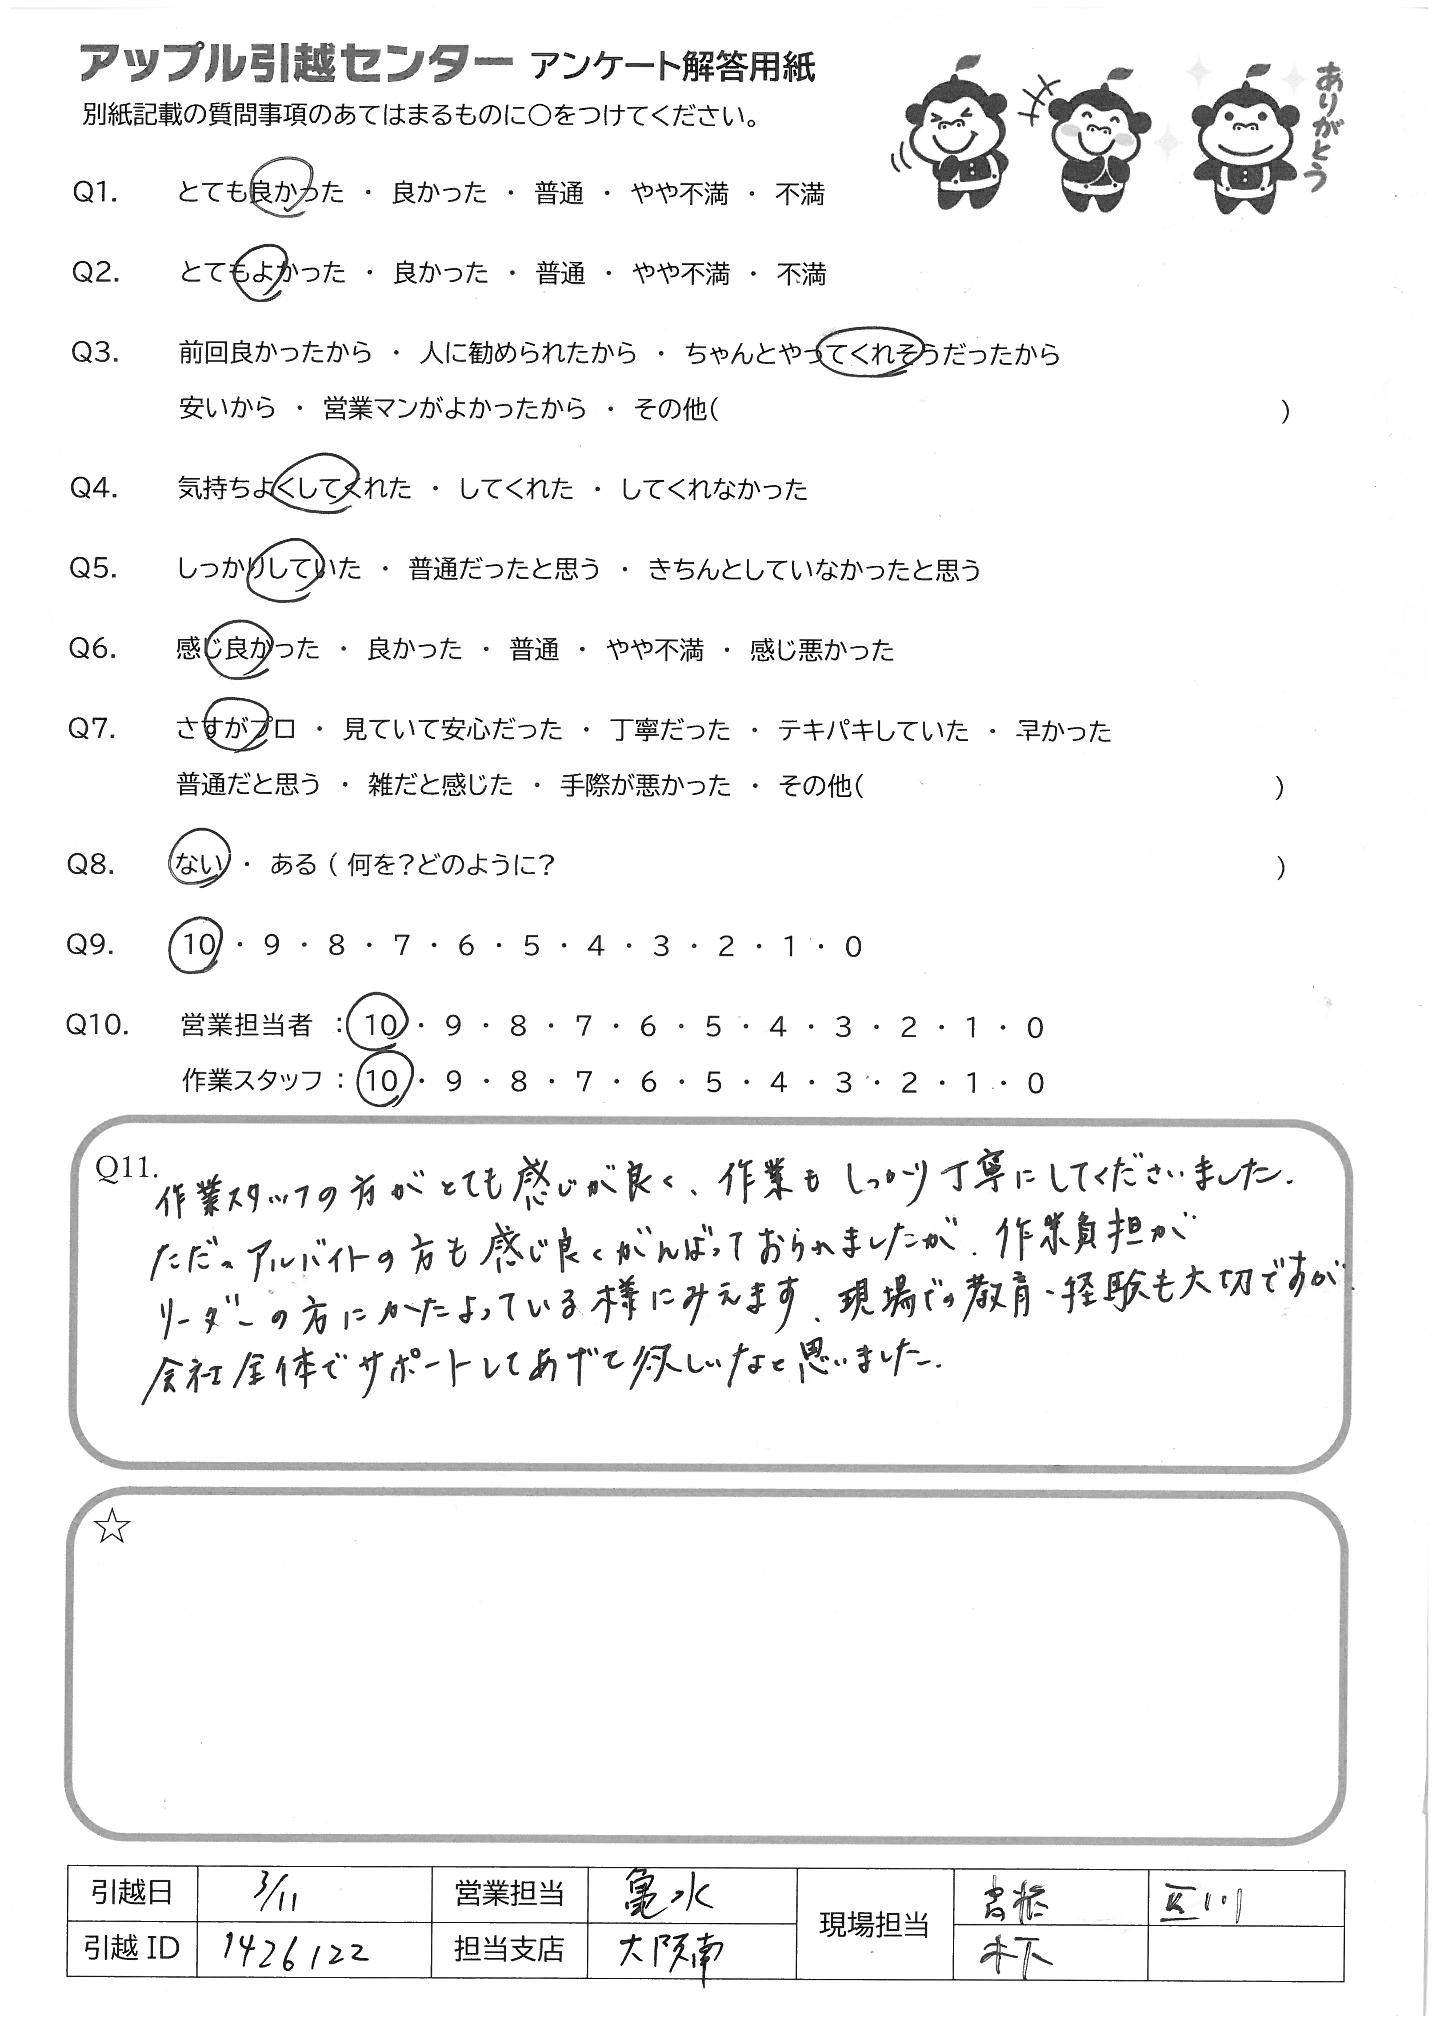 アップル引越センター アンケート解答用紙
別紙記載の質問事項のあてはまるものに○をつけてください。
ありがとう
Q1. とても良かった ・ 良かった ・ 普通 ・ やや不満 ・ 不満
Q2. とてもよかった ・ 良かった ・ 普通 ・ やや不満 ・ 不満
Q3. 前回良かったから ・ 人に勧められたから ・ ちゃんとやってくれそうだったから
安いから ・ 営業マンがよかったから ・ その他( )
Q4. 気持ちよくしてくれた ・ してくれた ・ してくれなかった
Q5. しっかりしていた ・ 普通だったと思う ・ きちんとしていなかったと思う
Q6. 感じ良かった ・ 良かった ・ 普通 ・ やや不満 ・ 感じ悪かった
Q7. さすがプロ ・ 見ていて安心だった ・ 丁寧だった ・ テキパキしていた ・ 早かった
普通だと思う ・ 雑だと感じた ・ 手際が悪かった ・ その他( )
Q8. ない ・ ある ( 何を?どのように? )
Q9. 10 ・ 9 ・ 8 ・ 7 ・ 6 ・ 5 ・ 4 ・ 3 ・ 2 ・ 1 ・ 0
Q10. 営業担当者 : 10 ・ 9 ・ 8 ・ 7 ・ 6 ・ 5 ・ 4 ・ 3 ・ 2 ・ 1 ・ 0
作業スタッフ : 10 ・ 9 ・ 8 ・ 7 ・ 6 ・ 5 ・ 4 ・ 3 ・ 2 ・ 1 ・ 0
Q11.
作業スタッフの方がとても感じが良く、作業もしっかり丁寧にしてくださいました。
ただ、アルバイトの方も感じ良くがんばっておられましたが、作業負担が
リーダーの方にかたよっている様にみえます、現場での教育・経験も大切ですが、
会社全体でサポートしてあげて欲しいなと思いました。
☆
引越日 3/11 営業担当 亀水 現場担当
引越ID 1426122 担当支店 大阪南 木下